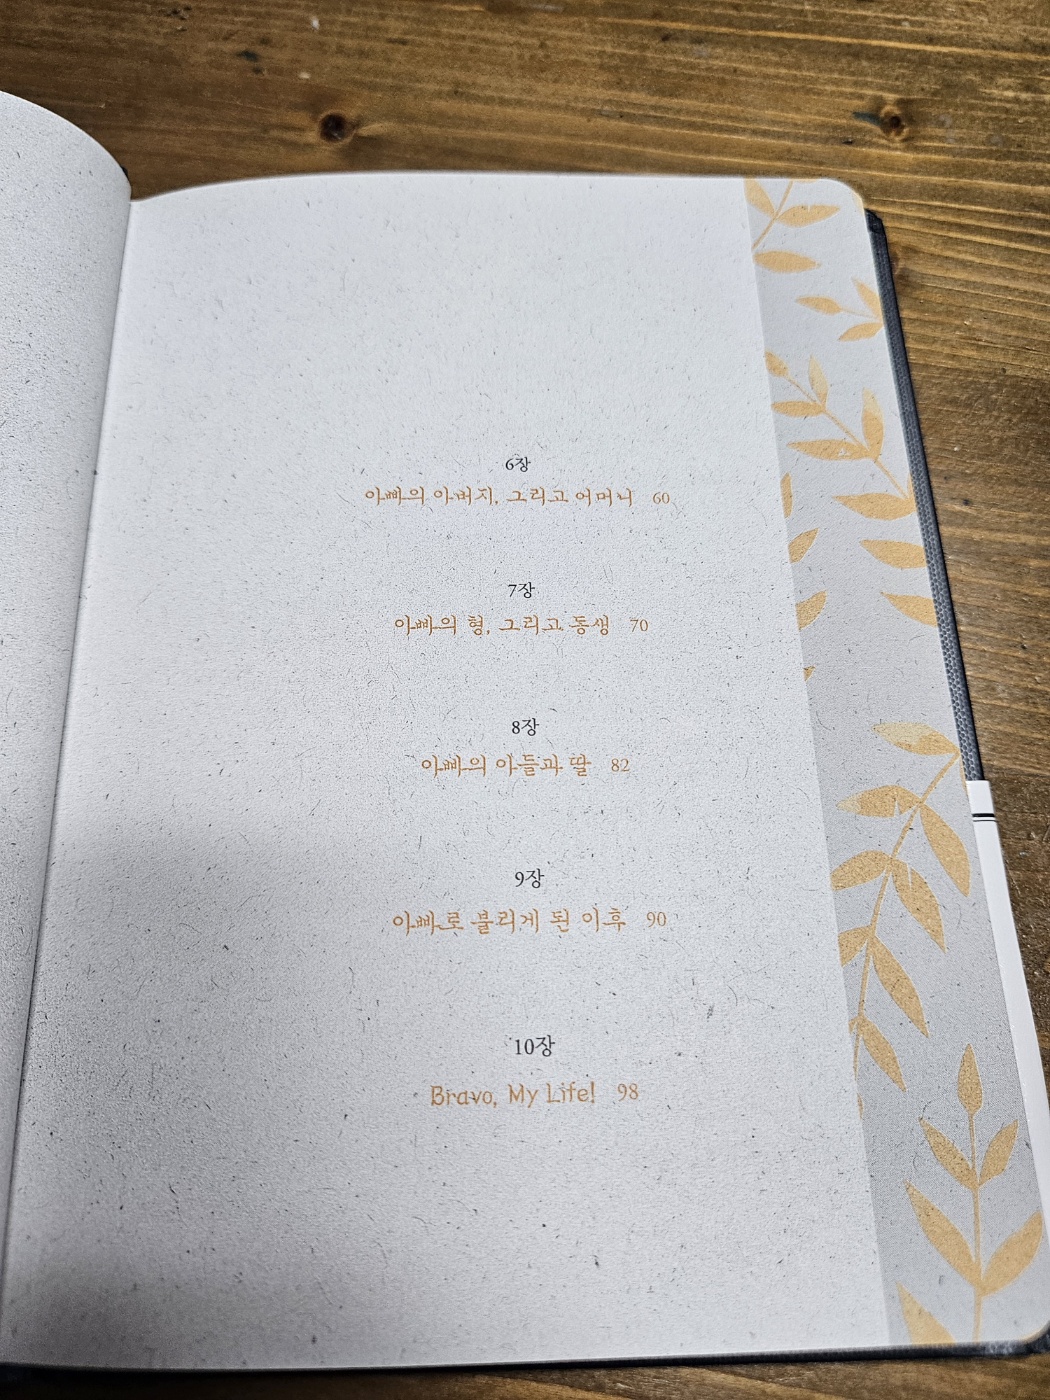 6장
아빠의 아버지, 그리고 어머니 60
7장
아빠의 형, 그리고 동생 70
8장
아빠의 아들과 딸 82
9장
아빠로 불리게 된 이후 90
10장
Bravo, My Life! 98